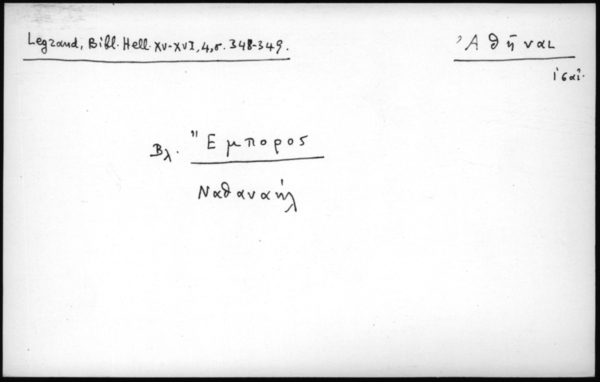 Legrand, Bibl. Hell. XV-XVI, 4, σ. 348-349.
Ἀθῆναι
ις αἰ.
Βλ. Ἔμπορος
Ναθαναήλ